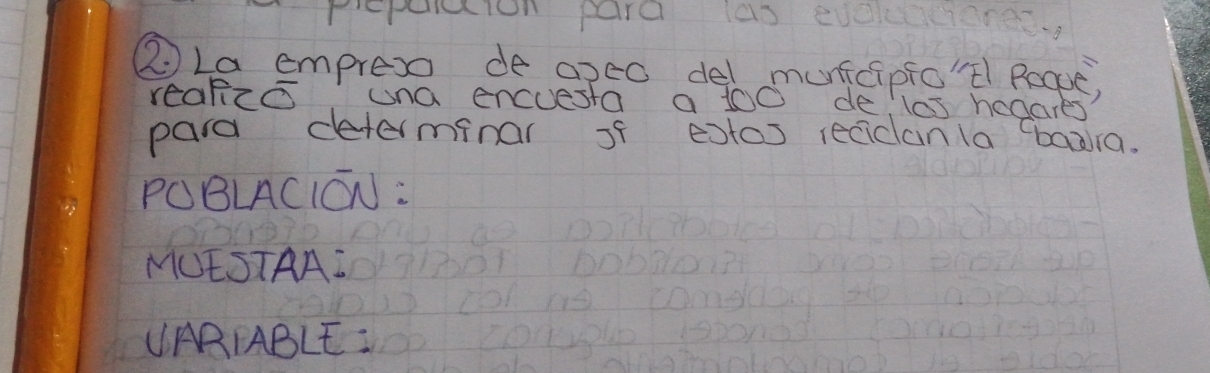 preparación para las evaluaciones..
②. La empresa de aseo del municipio "El Roque",
realizó una encuesta a 100 de los hogares
para determinar si estos reciclan la basura.
POBLACIÓN:
MUESTRA:
VARIABLE: